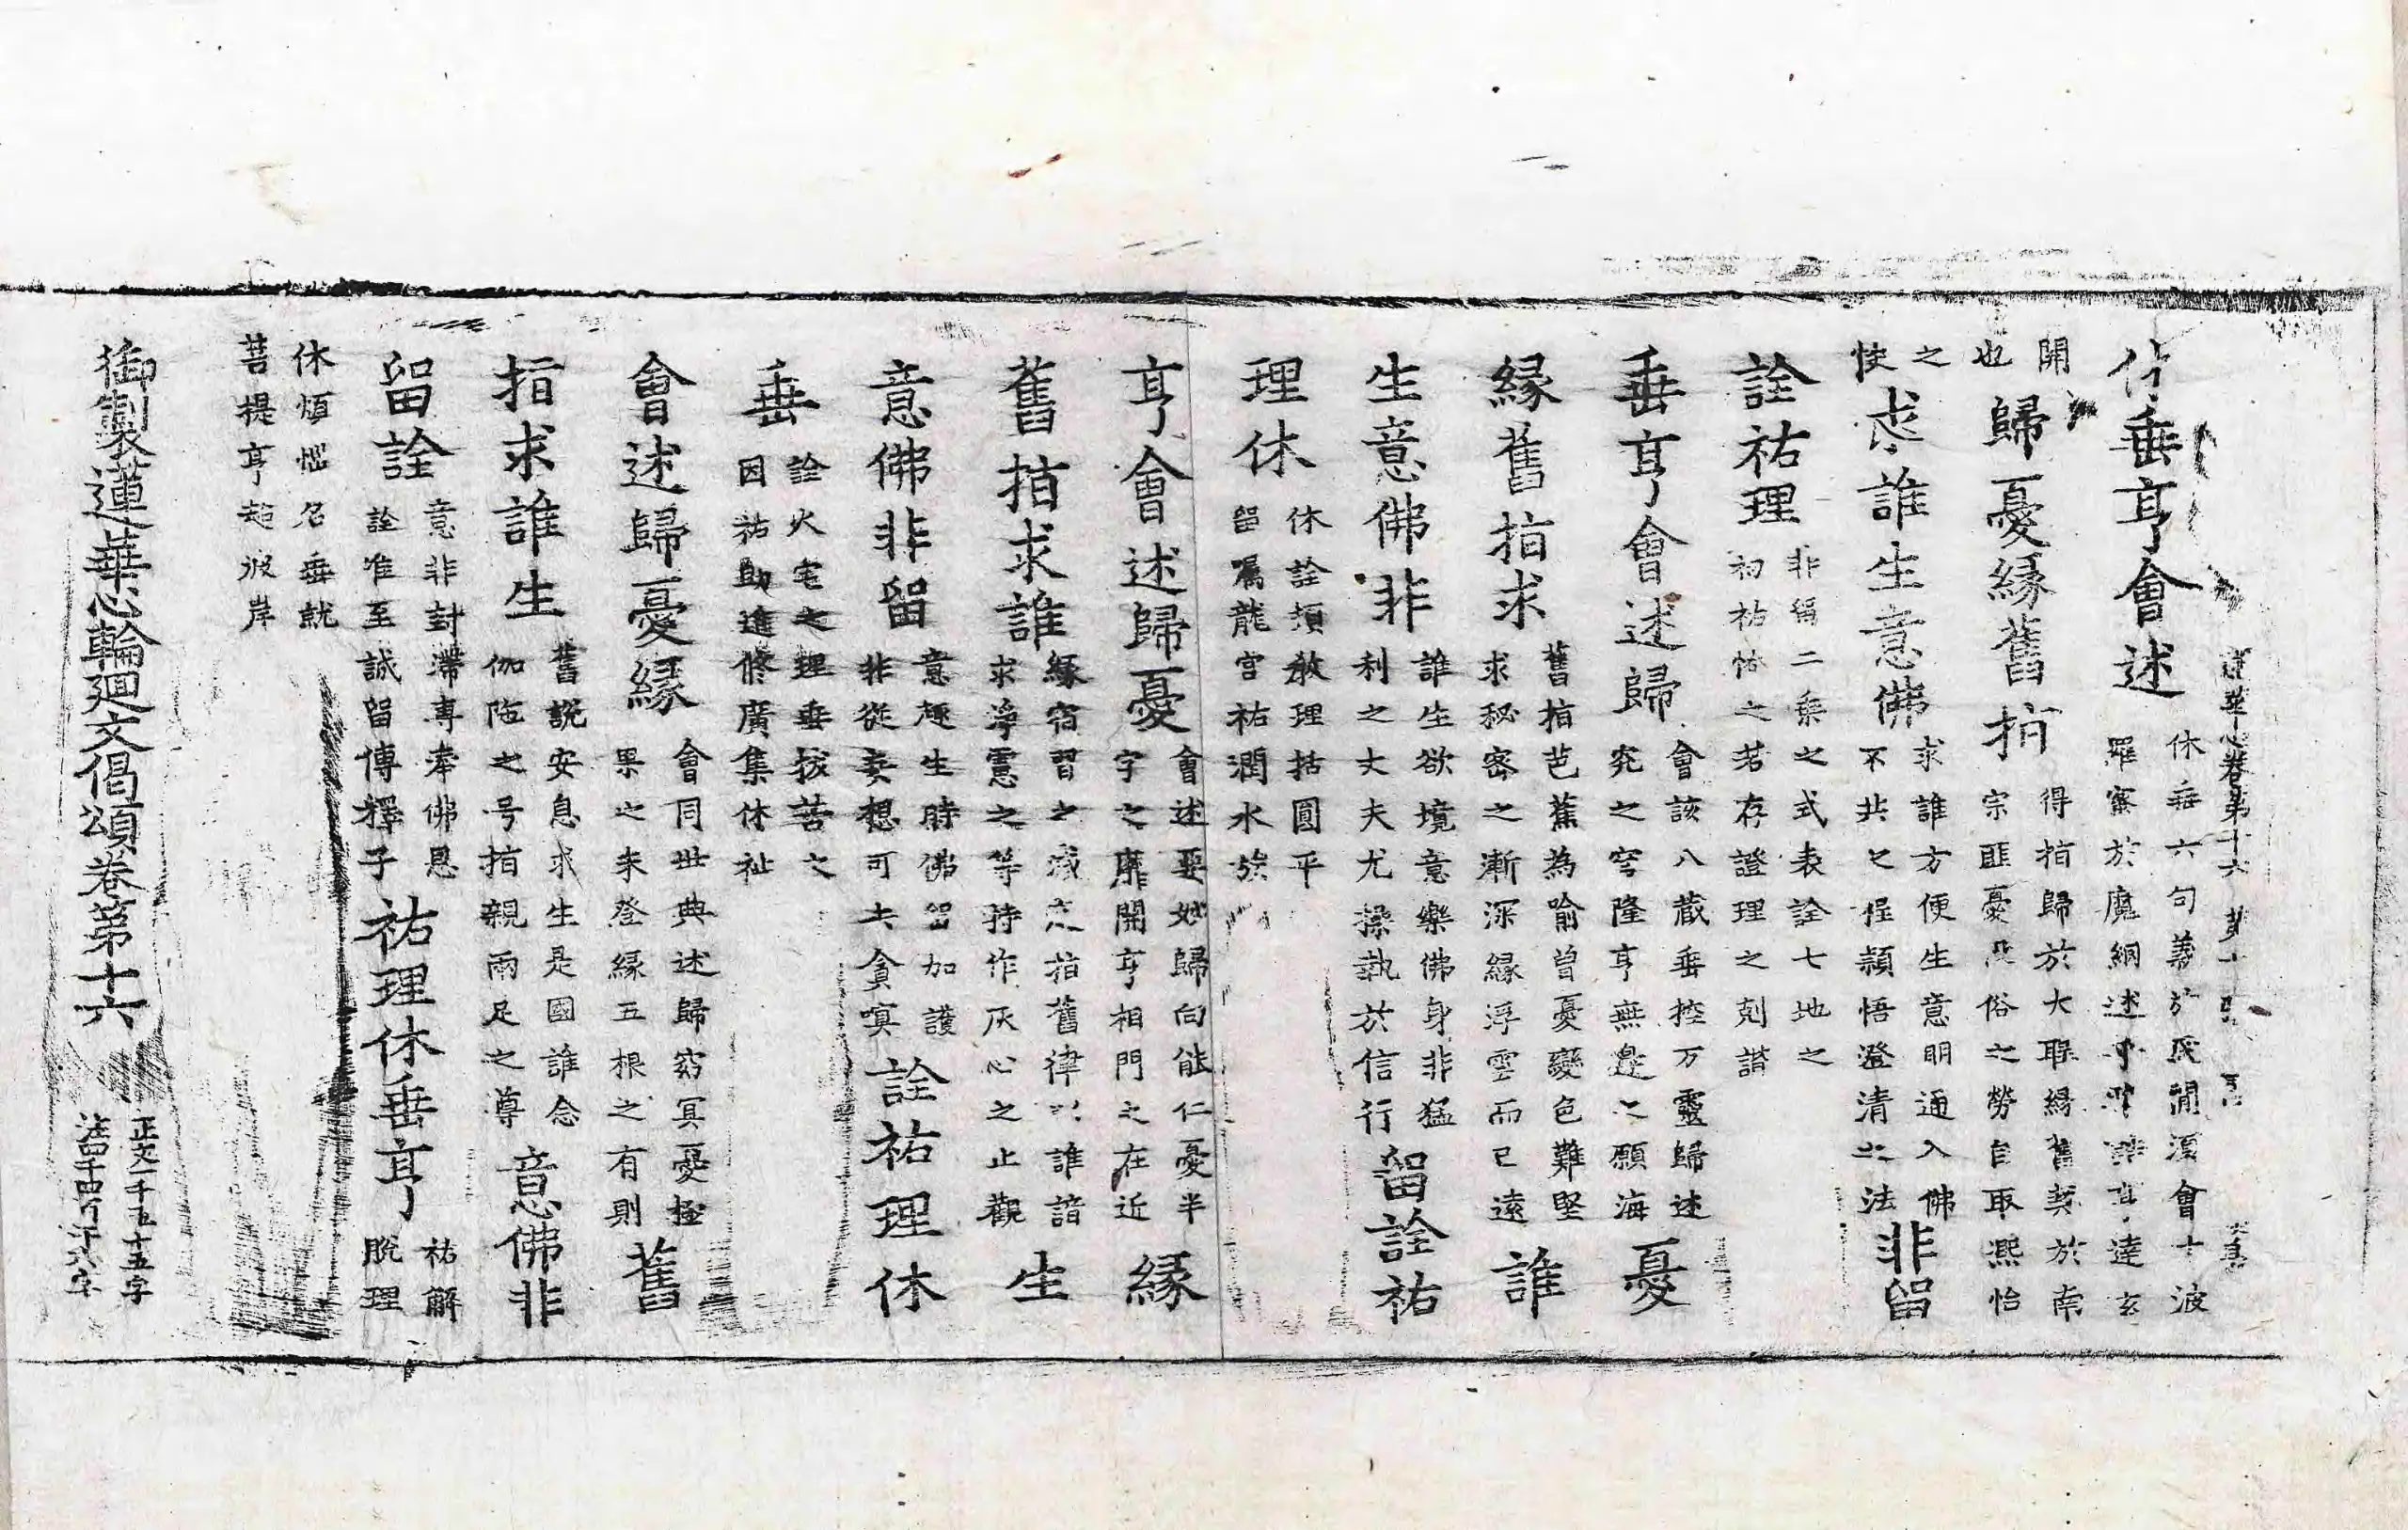 蓮華心卷第十六
休垂亨會述 休垂六句義於民開濵會十波 羅蜜於魔網述 達玄
開也 歸憂緣舊指 得指歸於大 緣舊契於南 宗匪憂 俗之勞自取熙怡
之使 求誰生意佛 求誰方便生意明通入佛 不共之 穎悟澄清 法 非留
詮祐理 非稱二乘之式表詮七地之 初祐怙之若存證理之剋諧
垂亨會述歸 會該八藏垂控万靈歸述 究之穹隆亨無邊之願海 憂
緣舊指求 舊指芭蕉為喻曾憂變色難堅 求秘密之漸深緣浮雲而已遠 誰
生意佛非 誰生欲境意樂佛身非猛 利之丈夫尤操執於信行 留詮祐
理休 休詮頒敎理括圓平 留囑龍宮祐潤水族
亨會述歸憂 會述要妙歸向能仁憂半 字之靡開亨相門之在近 緣
舊指求誰 緣宿習之 指舊律 誰諳 求淨慧之等持作灰心之止觀 生
意佛非留 意趣生時佛留加護 非從妄想可去貪嗔 詮祐理休
垂 詮火宅之理垂拔苦之 因祐助進修廣集休祉
會述歸憂緣 會同世典述歸窈冥憂極 果之未登緣五根之有則 舊
指求誰生 舊說安息求生是國誰念 伽陁之号指親兩足之尊 意佛非
留詮 意非封滯專奉佛恩 詮唯至誠留傳釋子 祐理休垂亨 祐解脫理
休煩惱名垂就 菩提亨超彼岸
御製蓮華心輪廻文偈頌卷第十六 正文一千五十五字